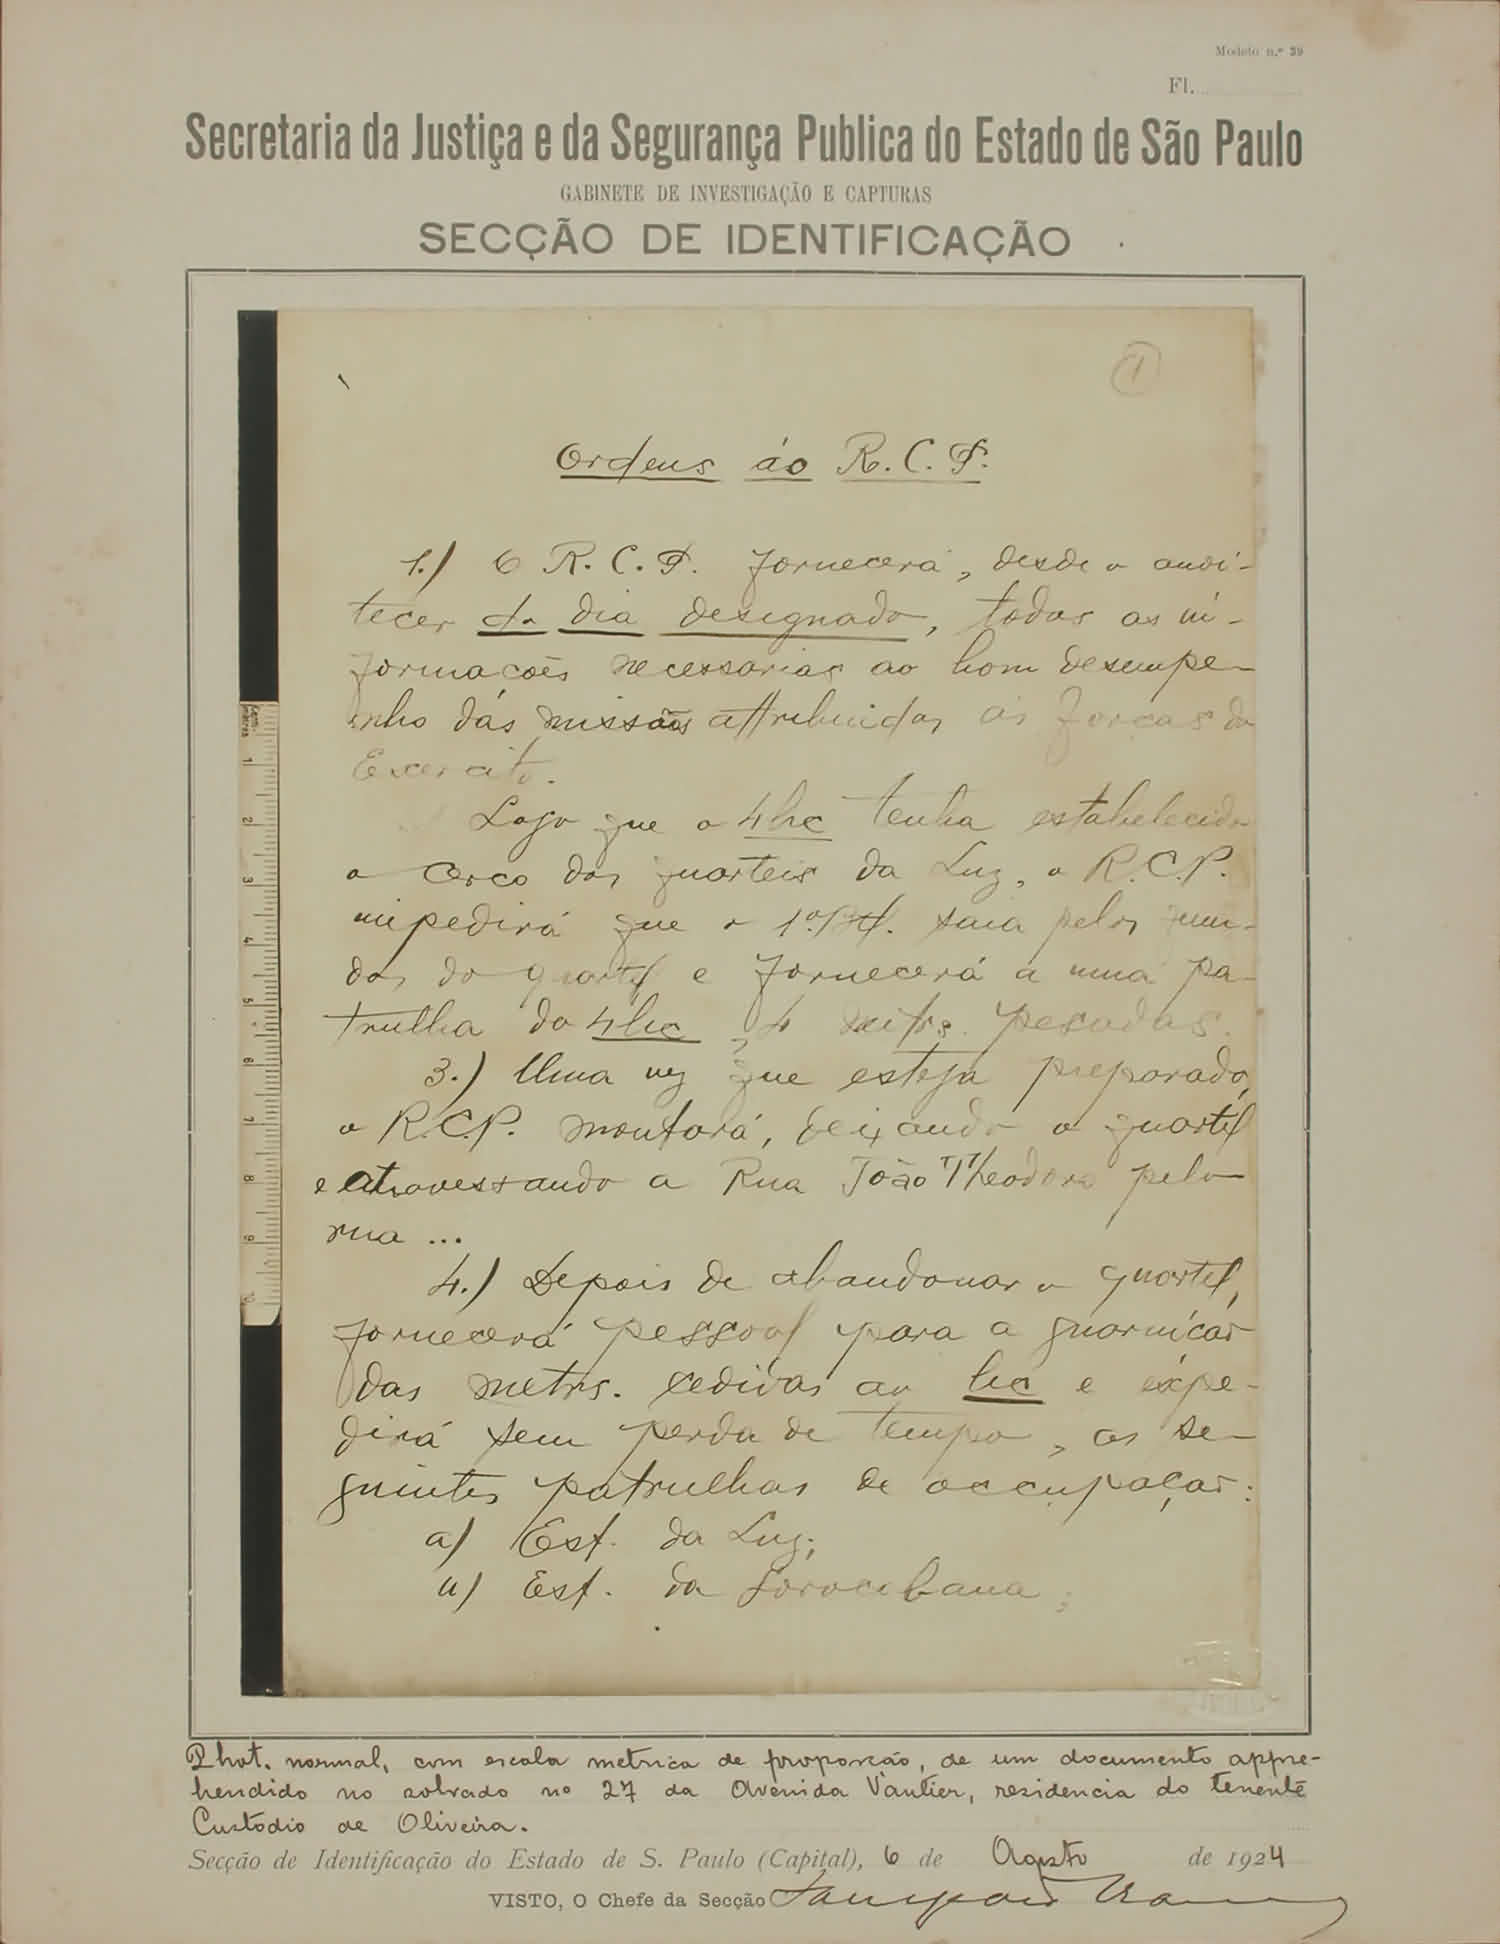 Modelo n.º 39
Fl.
Secretaria da Justiça e da Segurança Publica do Estado de São Paulo
GABINETE DE INVESTIGAÇÃO E CAPTURAS
SECÇÃO DE IDENTIFICAÇÃO
1
Ordens áo R. C. P.
1.) O R. C. P. fornecerá, desde o anoi-
tecer do dia designado, todas as in-
formacões necessarias ao bom desempe-
nho dás missões attribuidas ás forças do
Exercito.
Logo que o 4 bc tenha estabelecido
o cerco dos quarteis da Luz, o R.C.P.
impedirá que o 1º Btl. saia pelos fun-
dos do quartel e fornecerá a uma pa-
trulha do 4 bc, 4 metrs. pesadas.
3.) Uma vez que esteja preparado,
o R.C.P. montará, deixando o quartel
e atravessando a Rua João Theodoro pela
rua ...
4.) Depois de abandonar o quartel,
fornecerá pessoal para a guarnicão
das metrs. cedidas ao bc e expe-
dirá sem perda de tempo, as se-
guintes patrulhas de occupação:
a) Est. da Luz;
b) Est. da Sorocabana;
1
2
3
4
5
6
7
8
9
Phot. normal, com escala metrica de proporção, de um documento appre-
hendido no sobrado nº 27 da Avenida Vautier, residencia do tenente
Custodio de Oliveira.
Secção de Identificação do Estado de S. Paulo (Capital), 6 de Agosto de 1924
VISTO, O Chefe da Secção